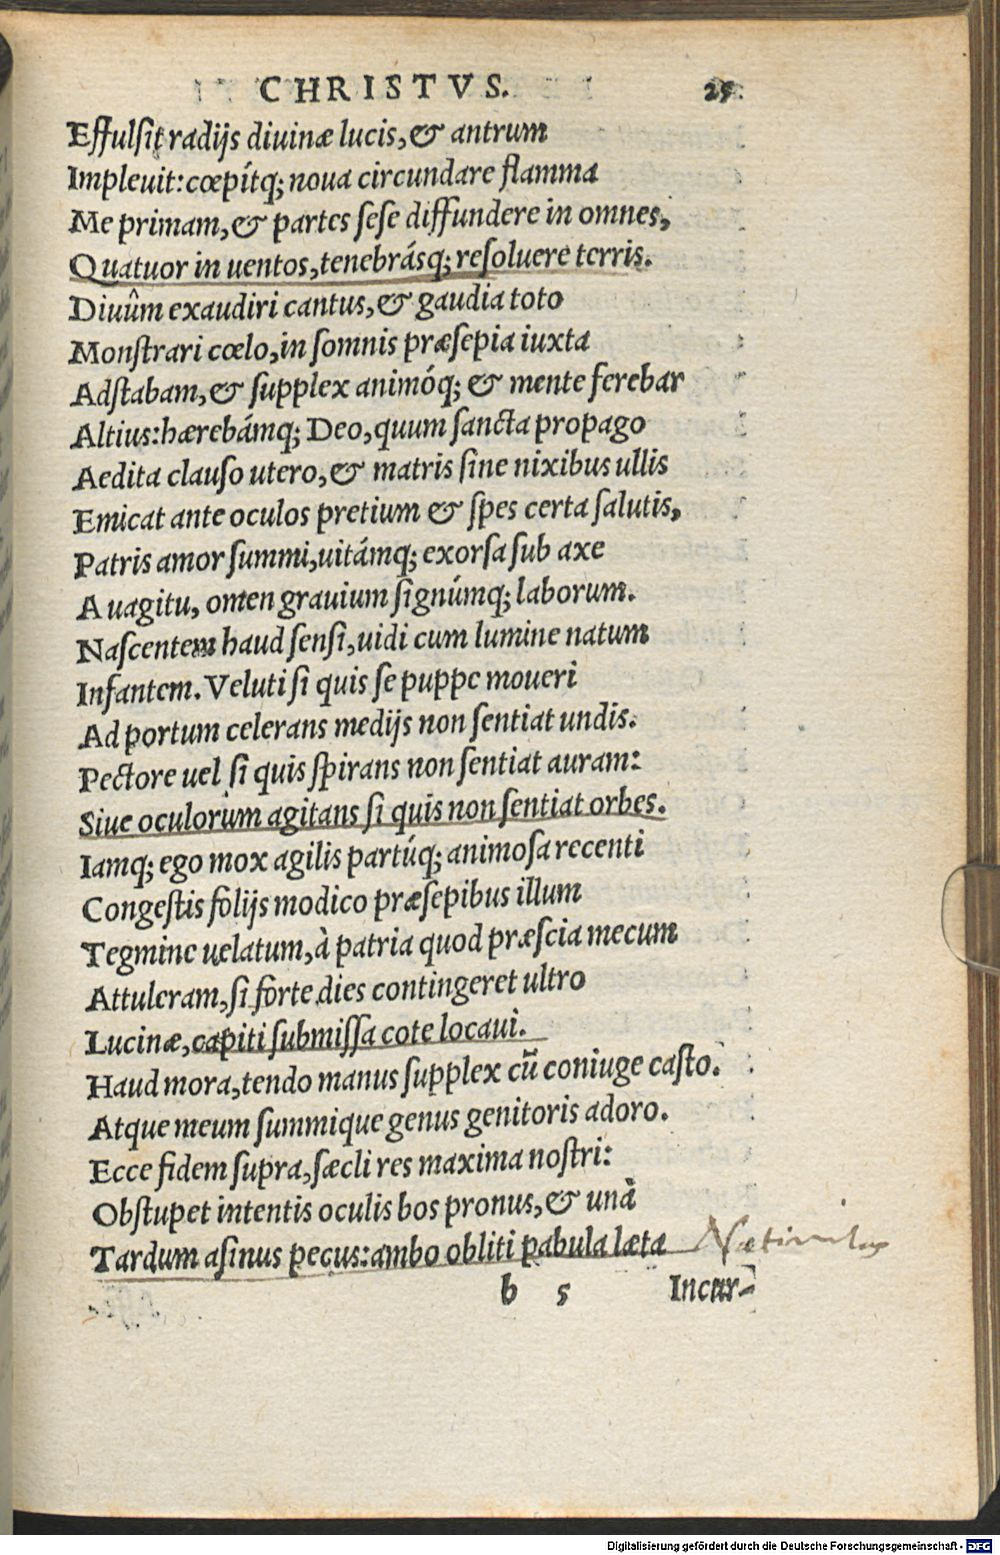 CHRISTVS. 25
Effulsit radijs diuinæ lucis, & antrum
Impleuit: cœpítq; noua circundare flamma
Me primam, & partes sese diffundere in omnes,
Quatuor in uentos, tenebrásq; resoluere terris.
Diuûm exaudiri cantus, & gaudia toto
Monstrari cœlo, in somnis præsepia iuxta
Adstabam, & supplex animóq; & mente ferebar
Altius: hærebámq; Deo, quum sancta propago
Aedita clauso utero, & matris sine nixibus ullis
Emicat ante oculos pretium & spes certa salutis,
Patris amor summi, uitámq; exorsa sub axe
A uagitu, omen grauium signúmq; laborum.
Nascentem haud sensi, uidi cum lumine natum
Infantem. Veluti si quis se puppe moueri
Ad portum celerans medijs non sentiat undis.
Pectore uel si quis spirans non sentiat auram:
Siue oculorum agitans si quis non sentiat orbes.
Iamq; ego mox agilis partúq; animosa recenti
Congestis folijs modico præsepibus illum
Tegmine uelatum, à patria quod præscia mecum
Attuleram, si forte dies contingeret ultro
Lucinæ, capiti submissa cote locaui.
Haud mora, tendo manus supplex cū coniuge casto.
Atque meum summique genus genitoris adoro.
Ecce fidem supra, sæcli res maxima nostri:
Obstupet intentis oculis bos pronus, & unà
Tardum asinus pecus: ambo obliti pabula læta
b 5 Incur-
Digitalisierung gefördert durch die Deutsche Forschungsgemeinschaft - DFG